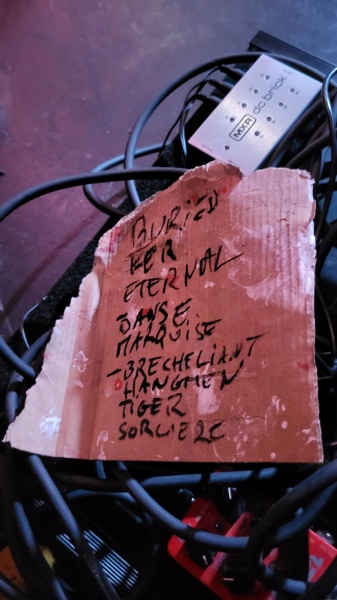 MXR dc brick
BURIED
FER
ETERNAL
DANSE
MARQUISE
- BRECHELIANT
HANGMEN
TIGER
SORCIERE